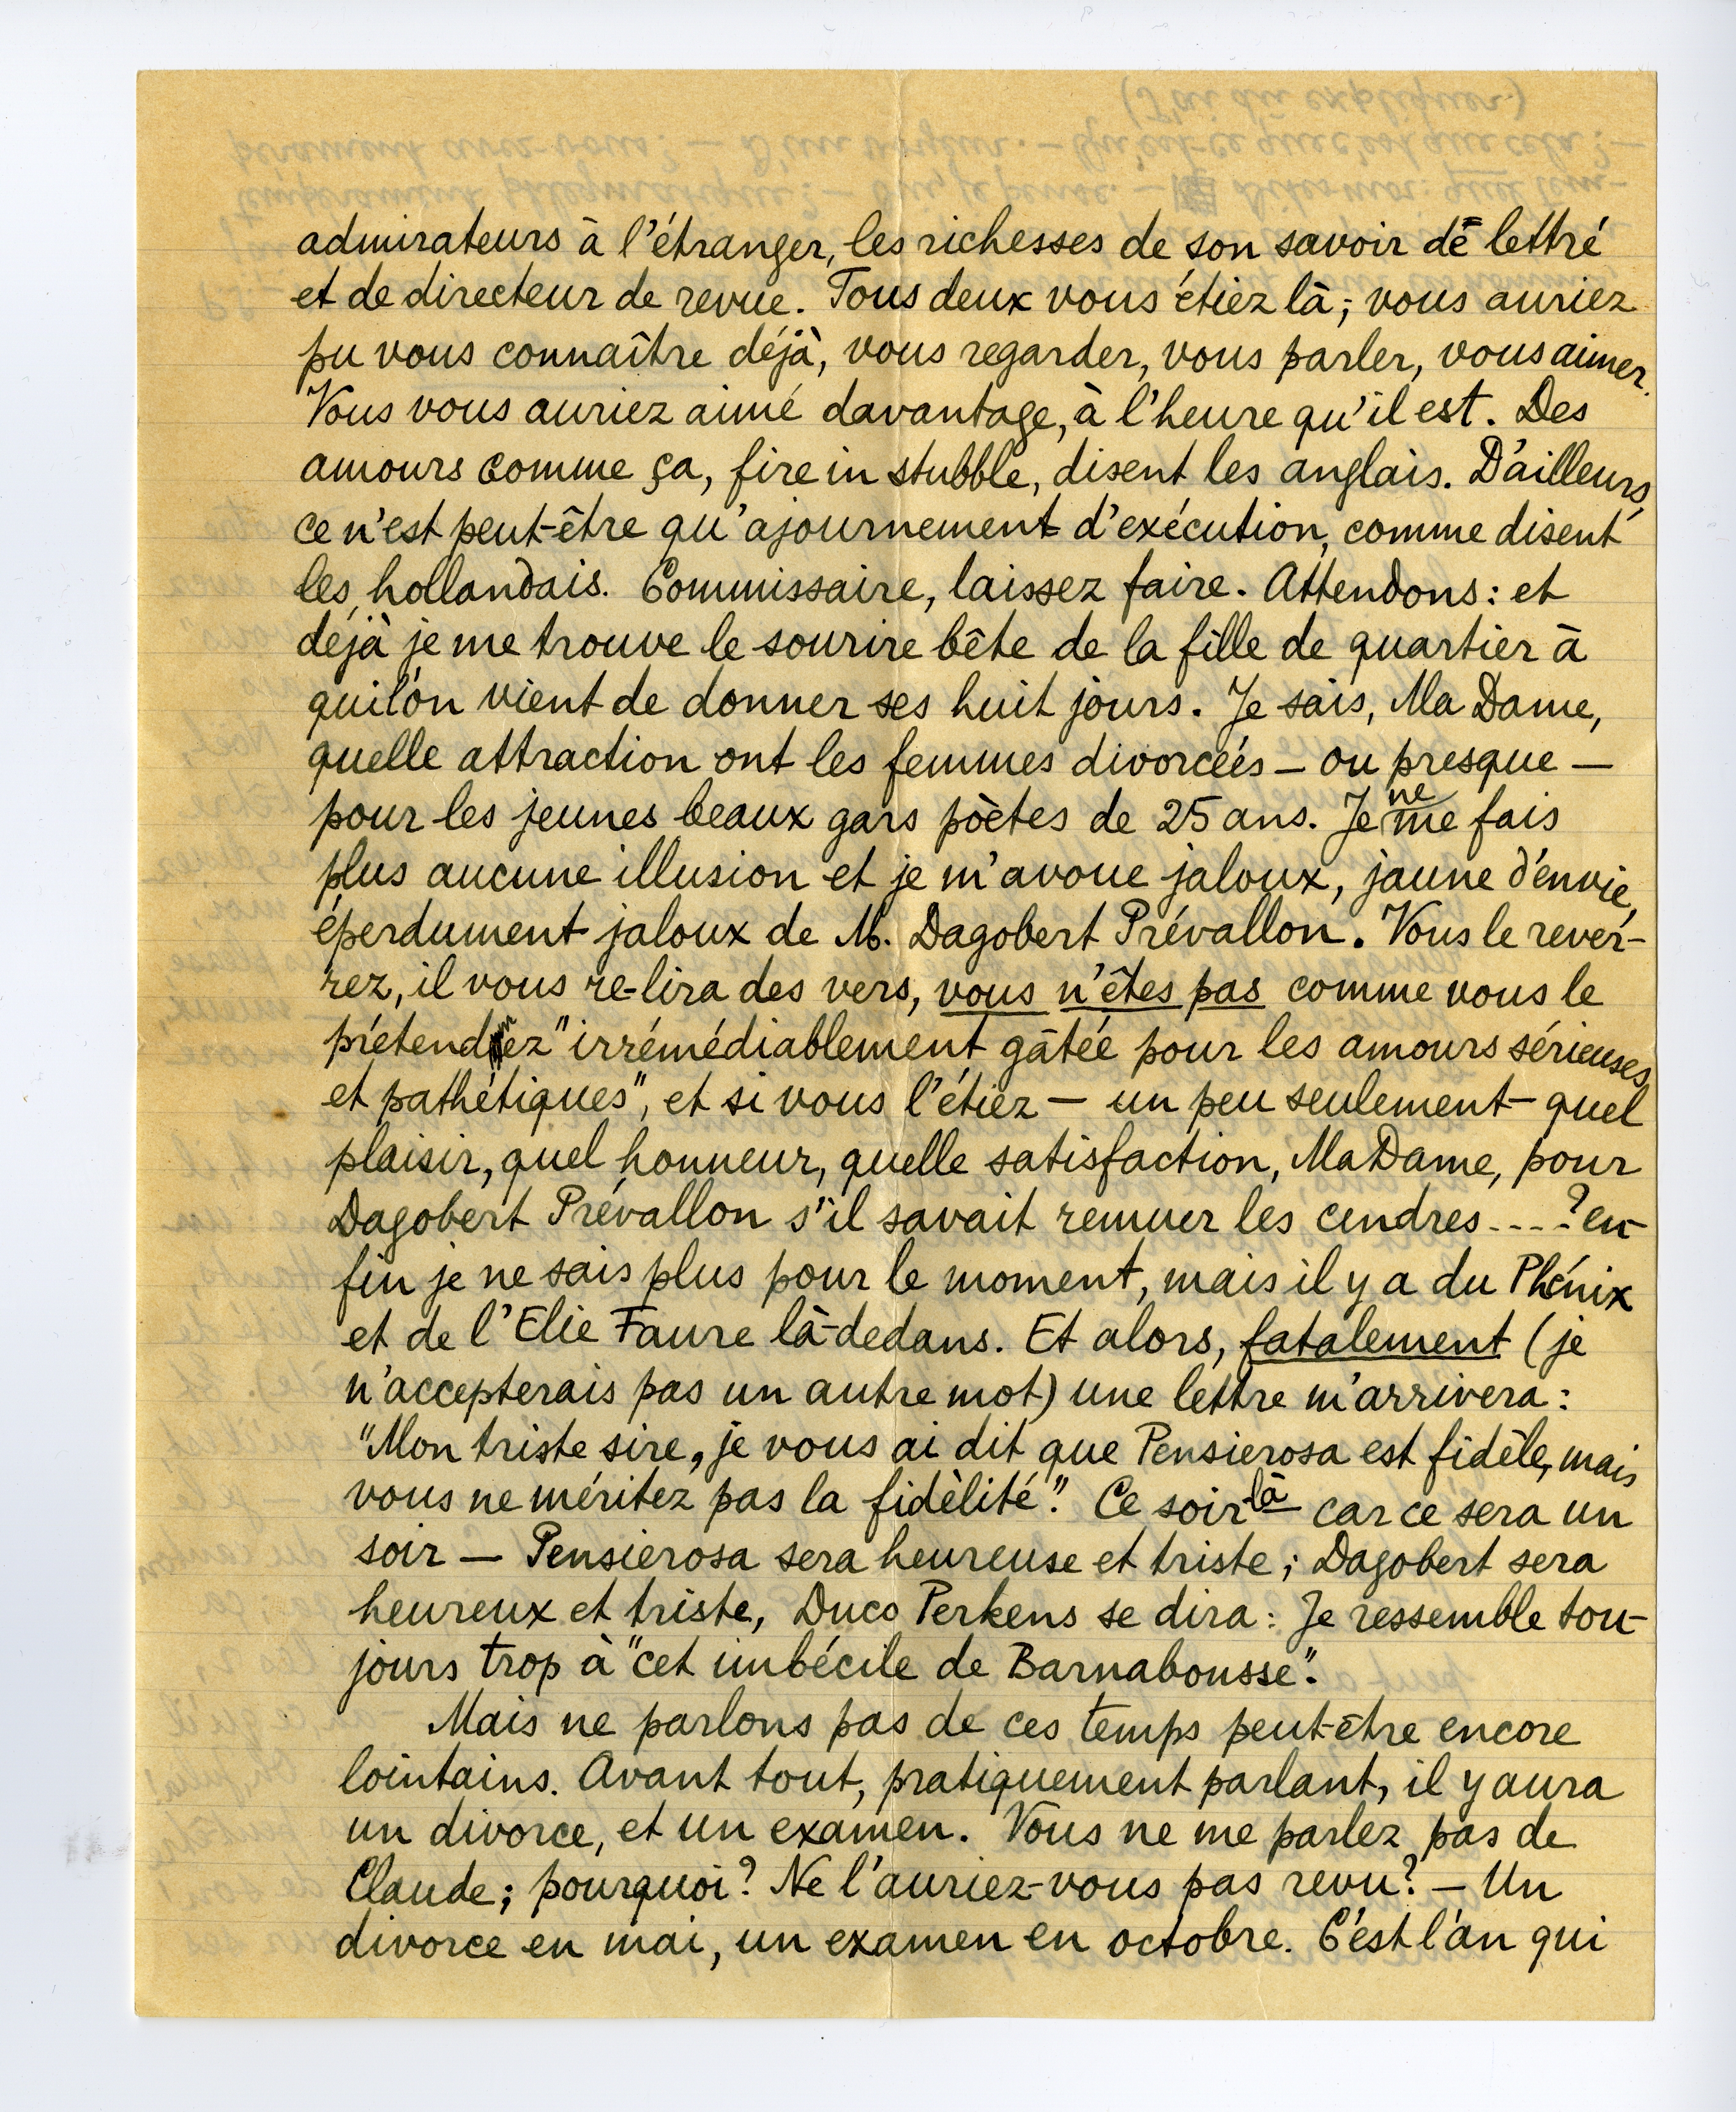 admirateurs à l'étranger, les richesses de son savoir de lettré
et de directeur de revue. Tous deux vous étiez là; vous auriez
pu vous connaître déjà, vous regarder, vous parler, vous aimer.
Vous vous auriez aimé davantage, à l'heure qu'il est. Des
amours comme ça, fire in stubble, disent les anglais. D'ailleurs,
ce n'est peut-être qu'ajournement d'exécution, comme disent
les hollandais. Commissaire, laissez faire. Attendons: et
déjà je me trouve le sourire bête de la fille de quartier à
qui l'on vient de donner ses huit jours. Je sais, Ma Dame,
quelle attraction ont les femmes divorcées – ou presque –
pour les jeunes beaux gars pòètes de 25 ans. Je ne me fais
plus aucune illusion et je m'avoue jaloux, jaune d'envie,
éperdument jaloux de M. Dagobert Prévallon. Vous le rever-
rez, il vous re-lira des vers, vous n'êtes pas comme vous le
prétendiez "irrémédiablement gâtée pour les amours sérieuses
et pathétiques", et si vous l'étiez – un peu seulement – quel
plaisir, quel honneur, quelle satisfaction, Ma Dame, pour
Dagobert Prévallon s'il savait remuer les cendres ....? en-
fin je ne sais plus pour le moment, mais il y a du Phénix
et de l'Elie Faure là-dedans. Et alors, fatalement (je
n'accepterais pas un autre mot) une lettre m'arrivera:
"Mon triste sire, je vous ai dit que Pensierosa est fidèle, mais
vous ne méritez pas la fidèlité". Ce soir là car ce sera un
soir – Pensierosa sera heureuse et triste; Dagobert sera
heureux et triste, Duco Perkens se dira: Je ressemble tou-
jours trop à "cet imbécile de Barnabousse".
Mais ne parlons pas de ces temps peut-être encore
lointains. Avant tout, pratiquement parlant, il y aura
un divorce, et un examen. Vous ne me parlez pas de
Claude; pourquoi? Ne l'auriez-vous pas revu? – Un
divorce en mai, un examen en octobre. C'est l'an qui